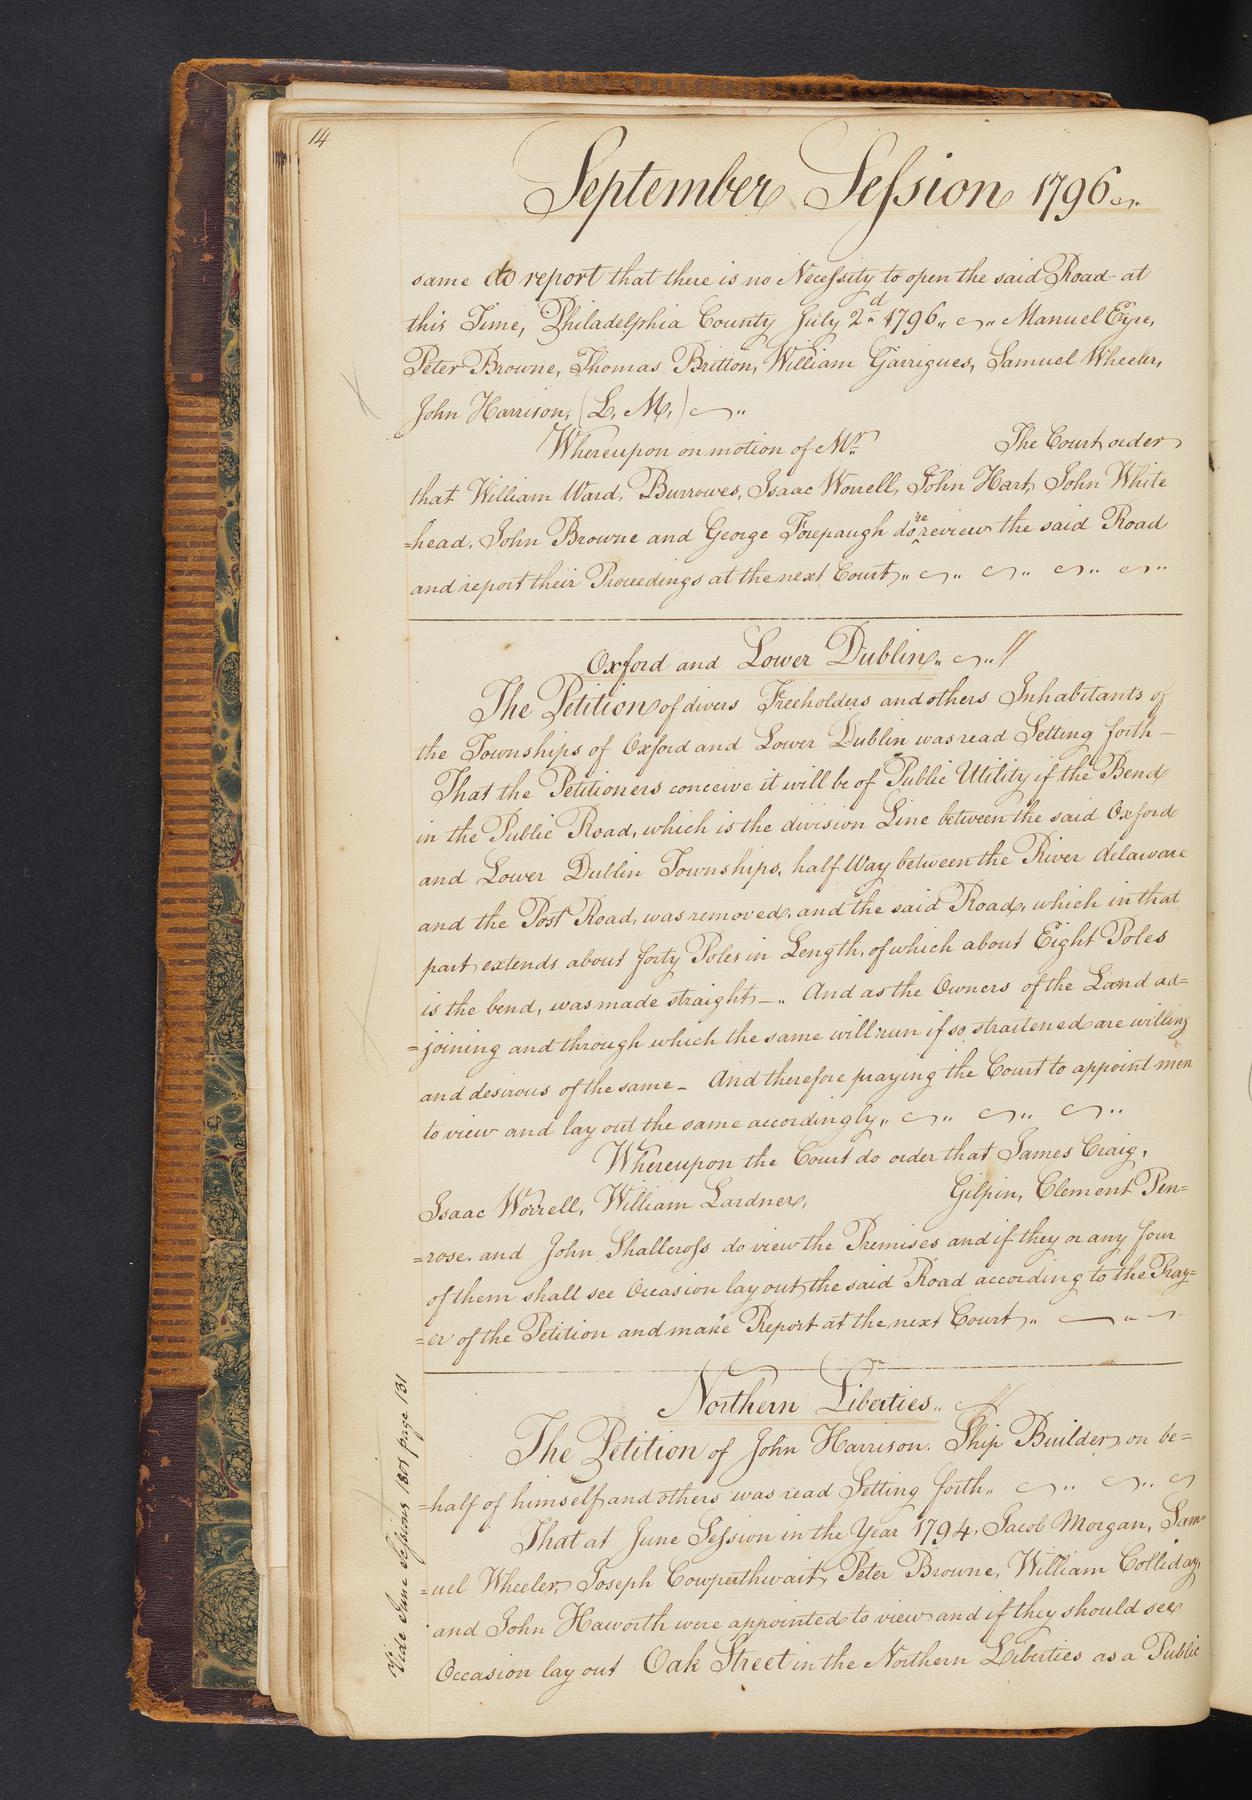 14
September Session 1796
same do report that there is no Necessity to open the said Road at
this Time, Philadelphia County July 2d 1796,, Manuel Eyre,
Peter Browne, Thomas Britton, William Garrigues, Samuel Wheeler,
John Harrison, (L. M.)
Whereupon on motion of Mr. The Court order
that William Ward, Burrowes, Isaac Worrell, John Hart, John White
=head, John Browne and George Forepaugh do re review the said Road
and report their Proceedings at the next Court,,
Oxford and Lower Dublin,,
The Petition of divers Freeholders and others Inhabitants of
the Townships of Oxford and Lower Dublin was read Setting forth —
That the Petitioners conceive it will be of Public Utility if the Bend
in the Public Road, which is the division Line between the said Oxford
and Lower Dublin Townships, half Way between the River delaware
and the Post Road, was removed, and the said Road, which in that
part extends about forty Poles in Length, of which about Eight Poles
is the bend, was made straight —,, And as the Owners of the Land ad=
=joining and through which the same will run if so straitened are willing
and desirous of the same — And therefore praying the Court to appoint men
to view and lay out the same accordingly,,
Whereupon the Court do order that James Craig,
Isaac Worrell, William Lardner, Gilpin, Clement Pen=
=rose, and John Shallcross do view the Premises and if they or any four
of them shall see Occasion lay out the said Road according to the Pray=
=er of the Petition and make Report at the next Court,,
Northern Liberties,,
The Petition of John Harrison, Ship Builder on be=
=half of himself and others was read Setting forth,,
That at June Session in the Year 1794, Jacob Morgan, Sam=
=uel Wheeler, Joseph Cowperthwait, Peter Browne, William Colliday,
and John Haworth were appointed to view and if they should see
Occasion lay out Oak Street in the Northern Liberties as a Public
Vide June Sessions 1801 page 131